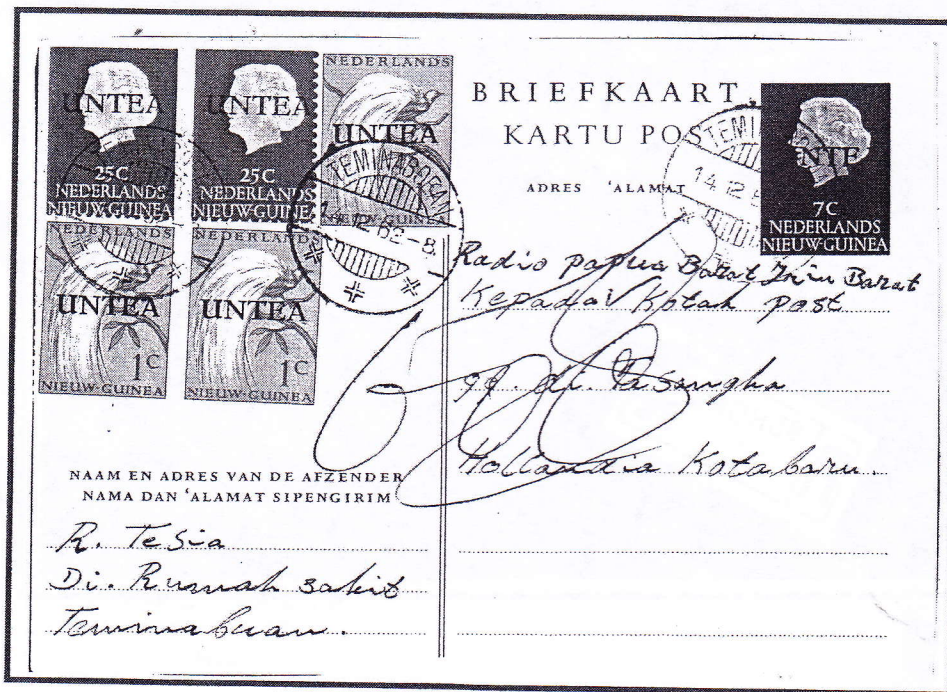 UNTEA
25C
NEDERLANDS
NIEUW-GUINEA
UNTEA
25C
NEDERLANDS
NIEUW-GUINEA
NEDERLANDS
UNTEA
1C
NIEUW-GUINEA
NEDERLANDS
UNTEA
1C
NIEUW-GUINEA
NEDERLANDS
UNTEA
1C
NIEUW-GUINEA
TEMINABOEAN
12.62-8
BRIEFKAART
KARTU POS
ADRES 'ALAMAT
TEMI
14.12.6
NTE
7C
NEDERLANDS
NIEUW-GUINEA
Radio papua Barat Irin Barat
Kepada Kotak post
di.
Hollandia Kotabaru.
NAAM EN ADRES VAN DE AFZENDER
NAMA DAN 'ALAMAT SIPENGIRIM
R. Tesia
Di. Rumah sakit
Teminabuan.